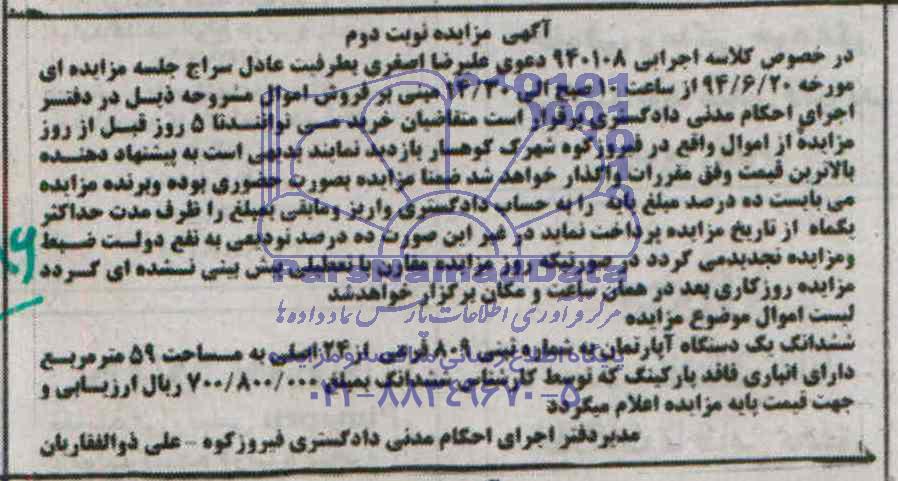 آگهی مزایده نوبت دوم
در خصوص کلاسه اجرایی ۹۴۰۱۰۸ دعوی علیرضا اصغری بطرفیت عادل سراج جلسه مزایده ای
مورخه ۹۴/۶/۲۰ از ساعت ۱۰ صبح الی ۱۲/۳۰ مبنی بر فروش اموال مشروحه ذیل در دفتر
اجرای احکام مدنی دادگستری برقرار است متقاضیان خرید می توانندتا ۵ روز قبل از روز
مزایده از اموال واقع در فیروزکوه شهرک کوهسار بازدید نمایند بدیهی است به پیشنهاد دهنده
بالاترین قیمت وفق مقررات واگذار خواهد شد ضمنا مزایده بصورت حضوری بوده وبرنده مزایده
می بایست ده درصد مبلغ پایه را به حساب دادگستری واریز ومابقی مبلغ را ظرف مدت حداکثر
یکماه از تاریخ مزایده پرداخت نماید در غیر این صورت ده درصد تودیعی به نفع دولت ضبط
ومزایده تجدیدمی گردد در صورتیکه روز مزایده مقارن با تعطیلی پیش بینی نشده ای گردد
مزایده روزکاری بعد در همان ساعت و مکان برگزار خواهدشد
لیست اموال موضوع مزایده
ششدانگ یک دستگاه آپارتمان به شماره ثبتی ۸۰۹ فرعی از ۲۴ اصلی به مساحت ۵۹ مترمربع
دارای انباری فاقد پارکینگ که توسط کارشناس ششدانگ بمبلغ ۷۰۰/۸۰۰/۰۰۰ ریال ارزیابی و
جهت قیمت پایه مزایده اعلام میگردد
مدیردفتر اجرای احکام مدنی دادگستری فیروزکوه - علی ذوالفقاریان
ParsNamadData
مرکز فرآوری اطلاعات پارس نماد داده ها
پایگاه اطلاع رسانی مناقصه و مزایده
۰۲۱-۸۸۳۴۹۶۷۰-۵